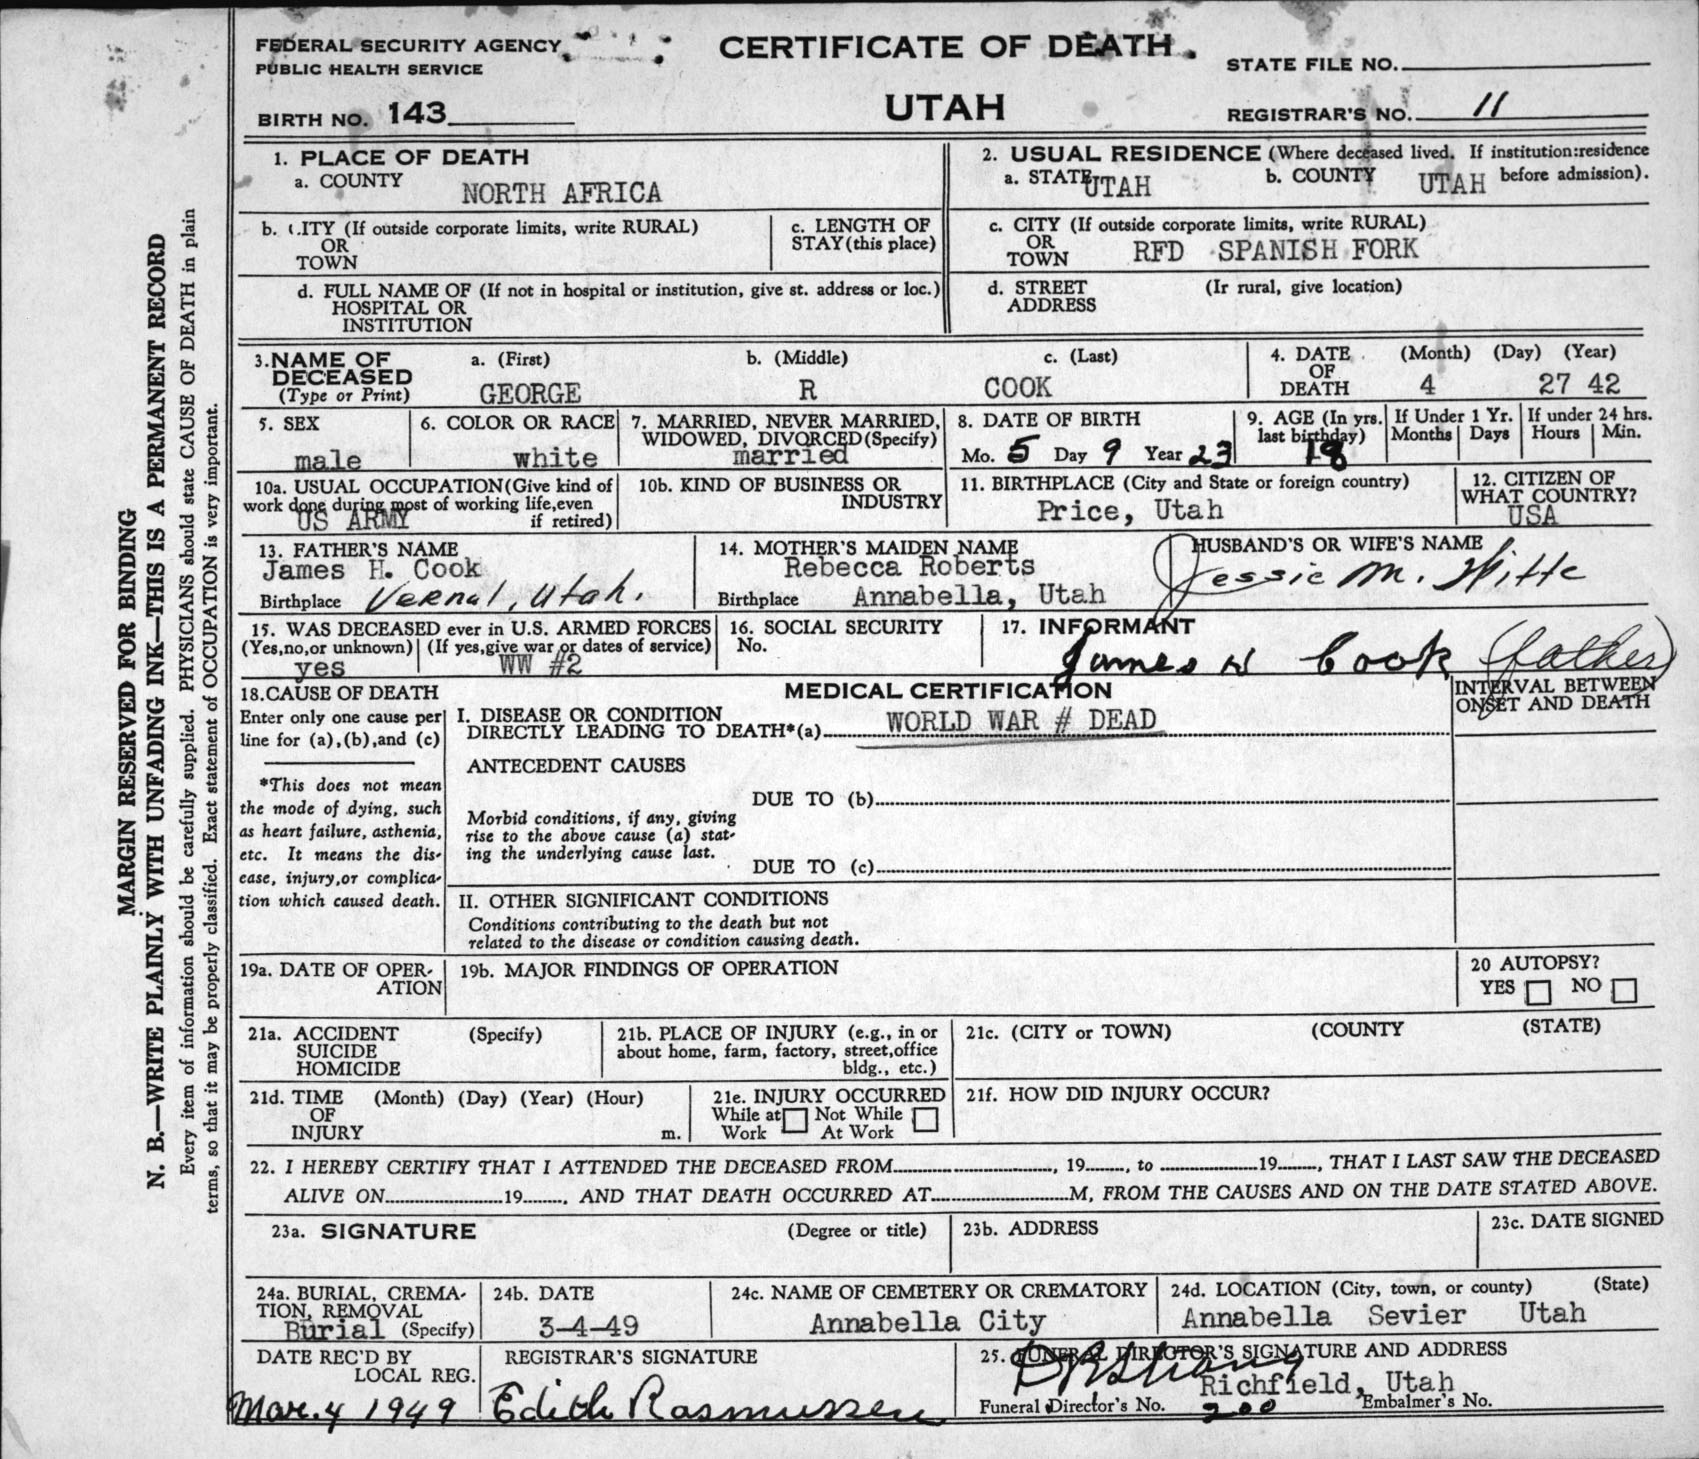 FEDERAL SECURITY AGENCY
PUBLIC HEALTH SERVICE
BIRTH NO. 143
CERTIFICATE OF DEATH
UTAH
STATE FILE NO.
REGISTRAR'S NO. 11
MARGIN RESERVED FOR BINDING
N. B.—WRITE PLAINLY WITH UNFADING INK—THIS IS A PERMANENT RECORD
Every item of information should be carefully supplied. PHYSICIANS should state CAUSE OF DEATH in plain
terms, so that it may be properly classified. Exact statement of OCCUPATION is very important.
1. PLACE OF DEATH
a. COUNTY
NORTH AFRICA
b. CITY (If outside corporate limits, write RURAL)
OR
TOWN
c. LENGTH OF
STAY (this place)
d. FULL NAME OF (If not in hospital or institution, give st. address or loc.)
HOSPITAL OR
INSTITUTION
2. USUAL RESIDENCE (Where deceased lived. If institution:residence
before admission).
a. STATE UTAH b. COUNTY UTAH
c. CITY (If outside corporate limits, write RURAL)
OR
TOWN RFD SPANISH FORK
d. STREET (Ir rural, give location)
ADDRESS
3. NAME OF
DECEASED
(Type or Print)
a. (First) b. (Middle) c. (Last)
GEORGE R COOK
4. DATE (Month) (Day) (Year)
OF
DEATH 4 27 42
5. SEX
male
6. COLOR OR RACE
white
7. MARRIED, NEVER MARRIED,
WIDOWED, DIVORCED (Specify)
married
8. DATE OF BIRTH
Mo. 5 Day 9 Year 23
9. AGE (In yrs.
last birthday)
18
If Under 1 Yr.
Months Days
If under 24 hrs.
Hours Min.
10a. USUAL OCCUPATION (Give kind of
work done during most of working life, even
if retired)
US ARMY
10b. KIND OF BUSINESS OR
INDUSTRY
11. BIRTHPLACE (City and State or foreign country)
Price, Utah
12. CITIZEN OF
WHAT COUNTRY?
USA
13. FATHER'S NAME
James H. Cook
Birthplace Vernal, Utah.
14. MOTHER'S MAIDEN NAME
Rebecca Roberts
Birthplace Annabella, Utah
HUSBAND'S OR WIFE'S NAME
Jessie M. Witte
15. WAS DECEASED ever in U.S. ARMED FORCES
(Yes,no,or unknown) (If yes,give war or dates of service)
yes WW #2
16. SOCIAL SECURITY
No.
17. INFORMANT
James H Cook (father)
18. CAUSE OF DEATH
Enter only one cause per
line for (a),(b),and (c)
*This does not mean
the mode of dying, such
as heart failure, asthenia,
etc. It means the dis-
ease, injury,or complica-
tion which caused death.
MEDICAL CERTIFICATION
INTERVAL BETWEEN
ONSET AND DEATH
I. DISEASE OR CONDITION
DIRECTLY LEADING TO DEATH*(a) WORLD WAR # DEAD
ANTECEDENT CAUSES
DUE TO (b)
Morbid conditions, if any, giving
rise to the above cause (a) stat-
ing the underlying cause last.
DUE TO (c)
II. OTHER SIGNIFICANT CONDITIONS
Conditions contributing to the death but not
related to the disease or condition causing death.
19a. DATE OF OPER-
ATION
19b. MAJOR FINDINGS OF OPERATION
20 AUTOPSY?
YES NO
21a. ACCIDENT (Specify)
SUICIDE
HOMICIDE
21b. PLACE OF INJURY (e.g., in or
about home, farm, factory, street,office
bldg., etc.)
21c. (CITY or TOWN) (COUNTY (STATE)
21d. TIME (Month) (Day) (Year) (Hour)
OF
INJURY m.
21e. INJURY OCCURRED
While at Not While
Work At Work
21f. HOW DID INJURY OCCUR?
22. I HEREBY CERTIFY THAT I ATTENDED THE DECEASED FROM , 19 , to 19 , THAT I LAST SAW THE DECEASED
ALIVE ON 19 , AND THAT DEATH OCCURRED AT M, FROM THE CAUSES AND ON THE DATE STATED ABOVE.
23a. SIGNATURE (Degree or title)
23b. ADDRESS
23c. DATE SIGNED
24a. BURIAL, CREMA-
TION, REMOVAL
Burial (Specify)
24b. DATE
3-4-49
24c. NAME OF CEMETERY OR CREMATORY
Annabella City
24d. LOCATION (City, town, or county) (State)
Annabella Sevier Utah
DATE REC'D BY
LOCAL REG.
Mar. 4 1949
REGISTRAR'S SIGNATURE
Edith Rasmussen
25. FUNERAL DIRECTOR'S SIGNATURE AND ADDRESS
Richfield, Utah
Funeral Director's No. 200 Embalmer's No.